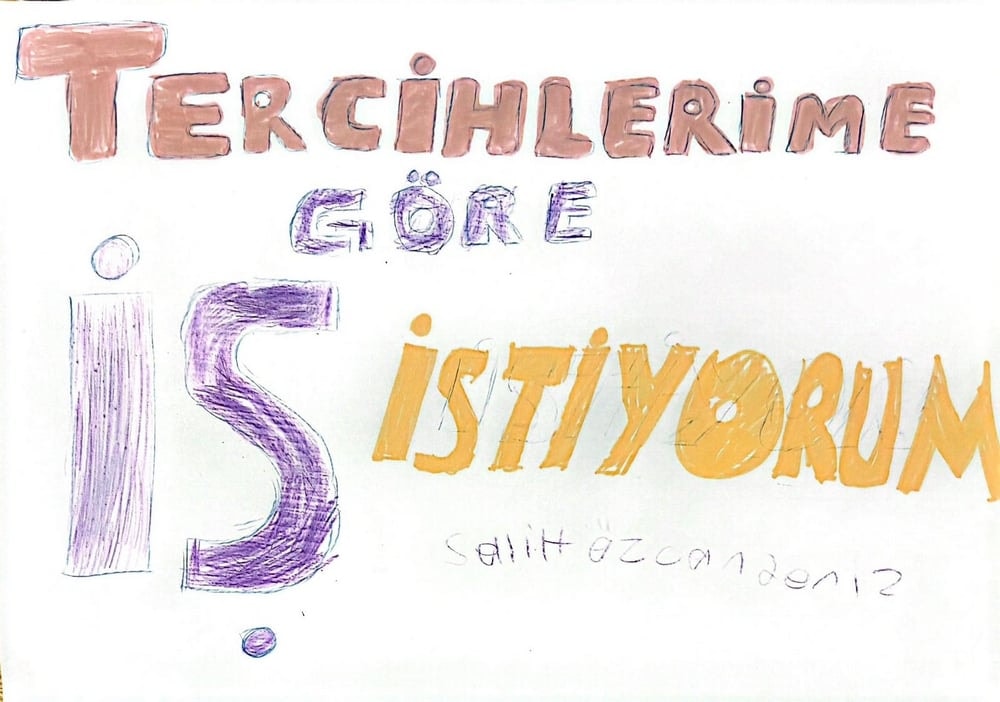 TERCİHLERİME
GÖRE
İŞ İSTİYORUM
SaliH özcandeniz